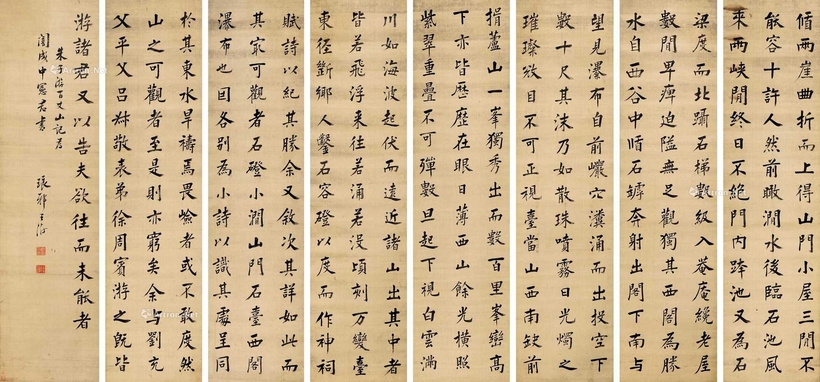 循兩崖曲折而上得山門小屋三間不
能容十許人然前瞰澗水後臨石池風
來兩峽間終日不絕門內跨池又為石
梁度而北躡石梯數級入菴庵纔老屋
數間卑痺迫隘無足觀獨其西閣為勝
水自西谷中循石罅奔射出閣下南與
望見瀑布自前巖穴瀵涌而出投空下
數十尺其沫乃如散珠噴霧日光燭之
璀璨奪目不可正視臺當山西南缺前
揖蘆山一峯獨秀出而數百里峯巒高
下亦皆歷歷在眼日薄西山餘光橫照
紫翠重疊不可殫數旦起下視白雲滿
川如海波起伏而遠近諸山出其中者
皆若飛浮來往若涌若沒頃刻万變臺
東徑斷鄉人鑿石容磴以度而作神祠
賦詩以紀其勝余又敘次其詳如此而
其最可觀者石磴小澗山門石臺西閣
瀑布也因各別為小詩以識其處呈同
於其東水旱禱焉畏崄者或不敢度然
山之可觀者至是則亦窮矣余與劉充
父平父呂叔敬表弟徐周賓游之既皆
游諸君又以告夫欲往而未能者
朱子游百丈山記為
成中憲君書
琅邪王澍